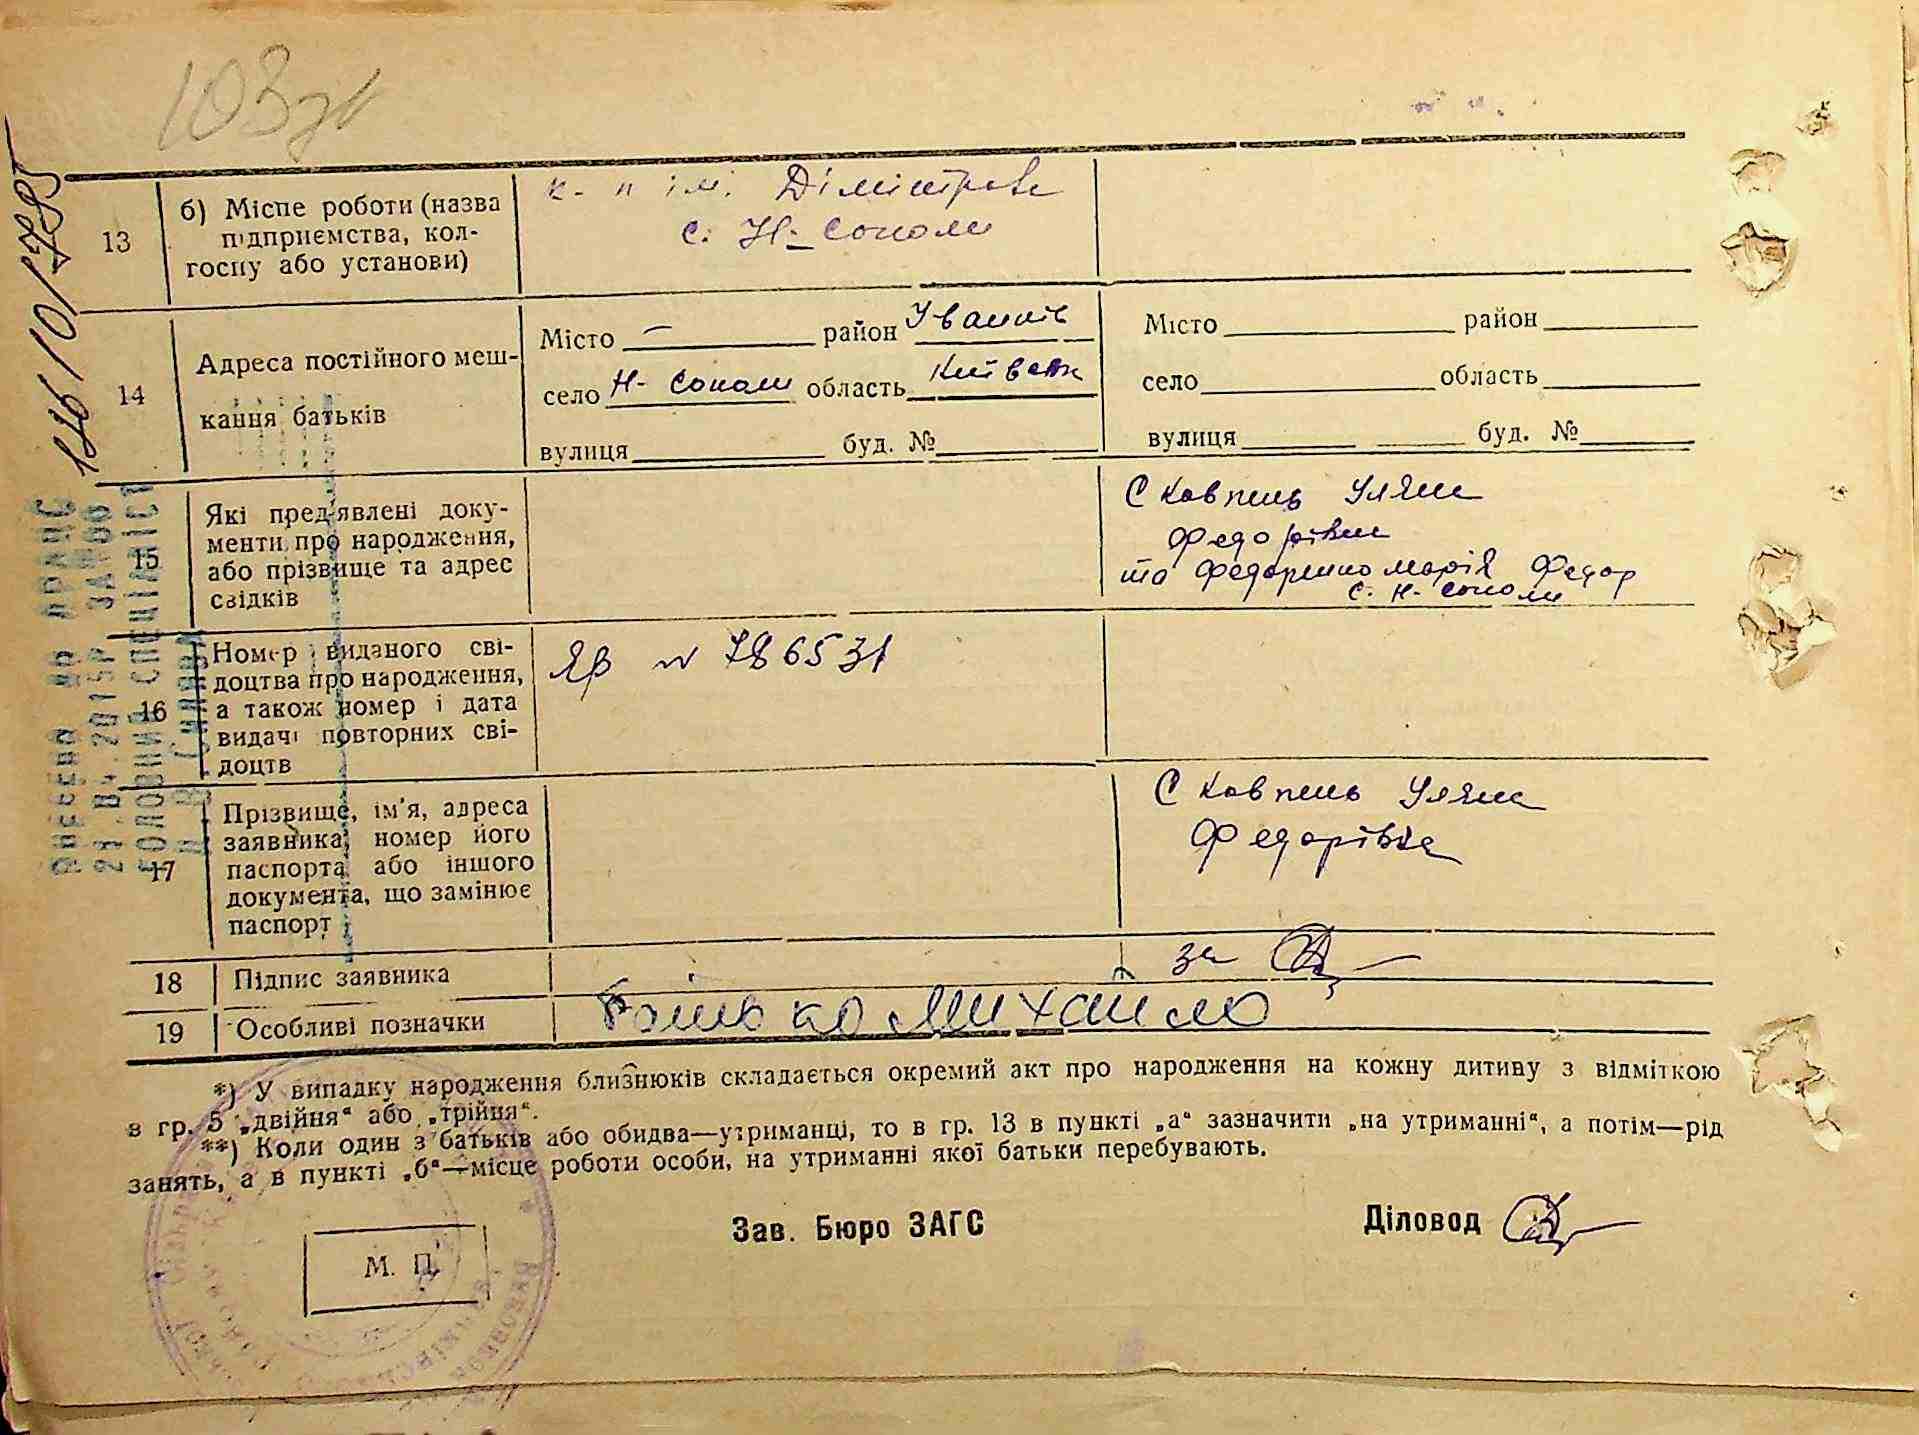 103зв
116/10/1785
13
б) Місце роботи (назва підприємства, колгоспу або установи)
к-п ім. Дімітрова
с. Н-Соколи
14
Адреса постійного мешкання батьків
Місто — район Іванків
село Н-Соколи область Київська
вулиця буд. №
Місто район
село область
вулиця буд. №
15
Які пред'явлені документи про народження, або прізвище та адрес свідків
Сковпень Уляна
Федорівна
та Федоренко Марія Федор
с. Н-Соколи
16
Номер виданого свідоцтва про народження, а також номер і дата видачі повторних свідоцтв
ЯР № 786531
17
Прізвище, ім'я, адреса заявника, номер його паспорта або іншого документа, що замінює паспорт
Сковпень Уляна
Федорівна
18
Підпис заявника
за
19
Особливі позначки
Михайло
*) У випадку народження близнюків складається окремий акт про народження на кожну дитину з відміткою
в гр. 5 „двійня“ або „трійня“.
**) Коли один з батьків або обидва—утриманці, то в гр. 13 в пункті „а“ зазначити „на утриманні“, а потім—рід
занять, а в пункті „б“—місце роботи особи, на утриманні якої батьки перебувають.
Зав. Бюро ЗАГС
Діловод
М. П.